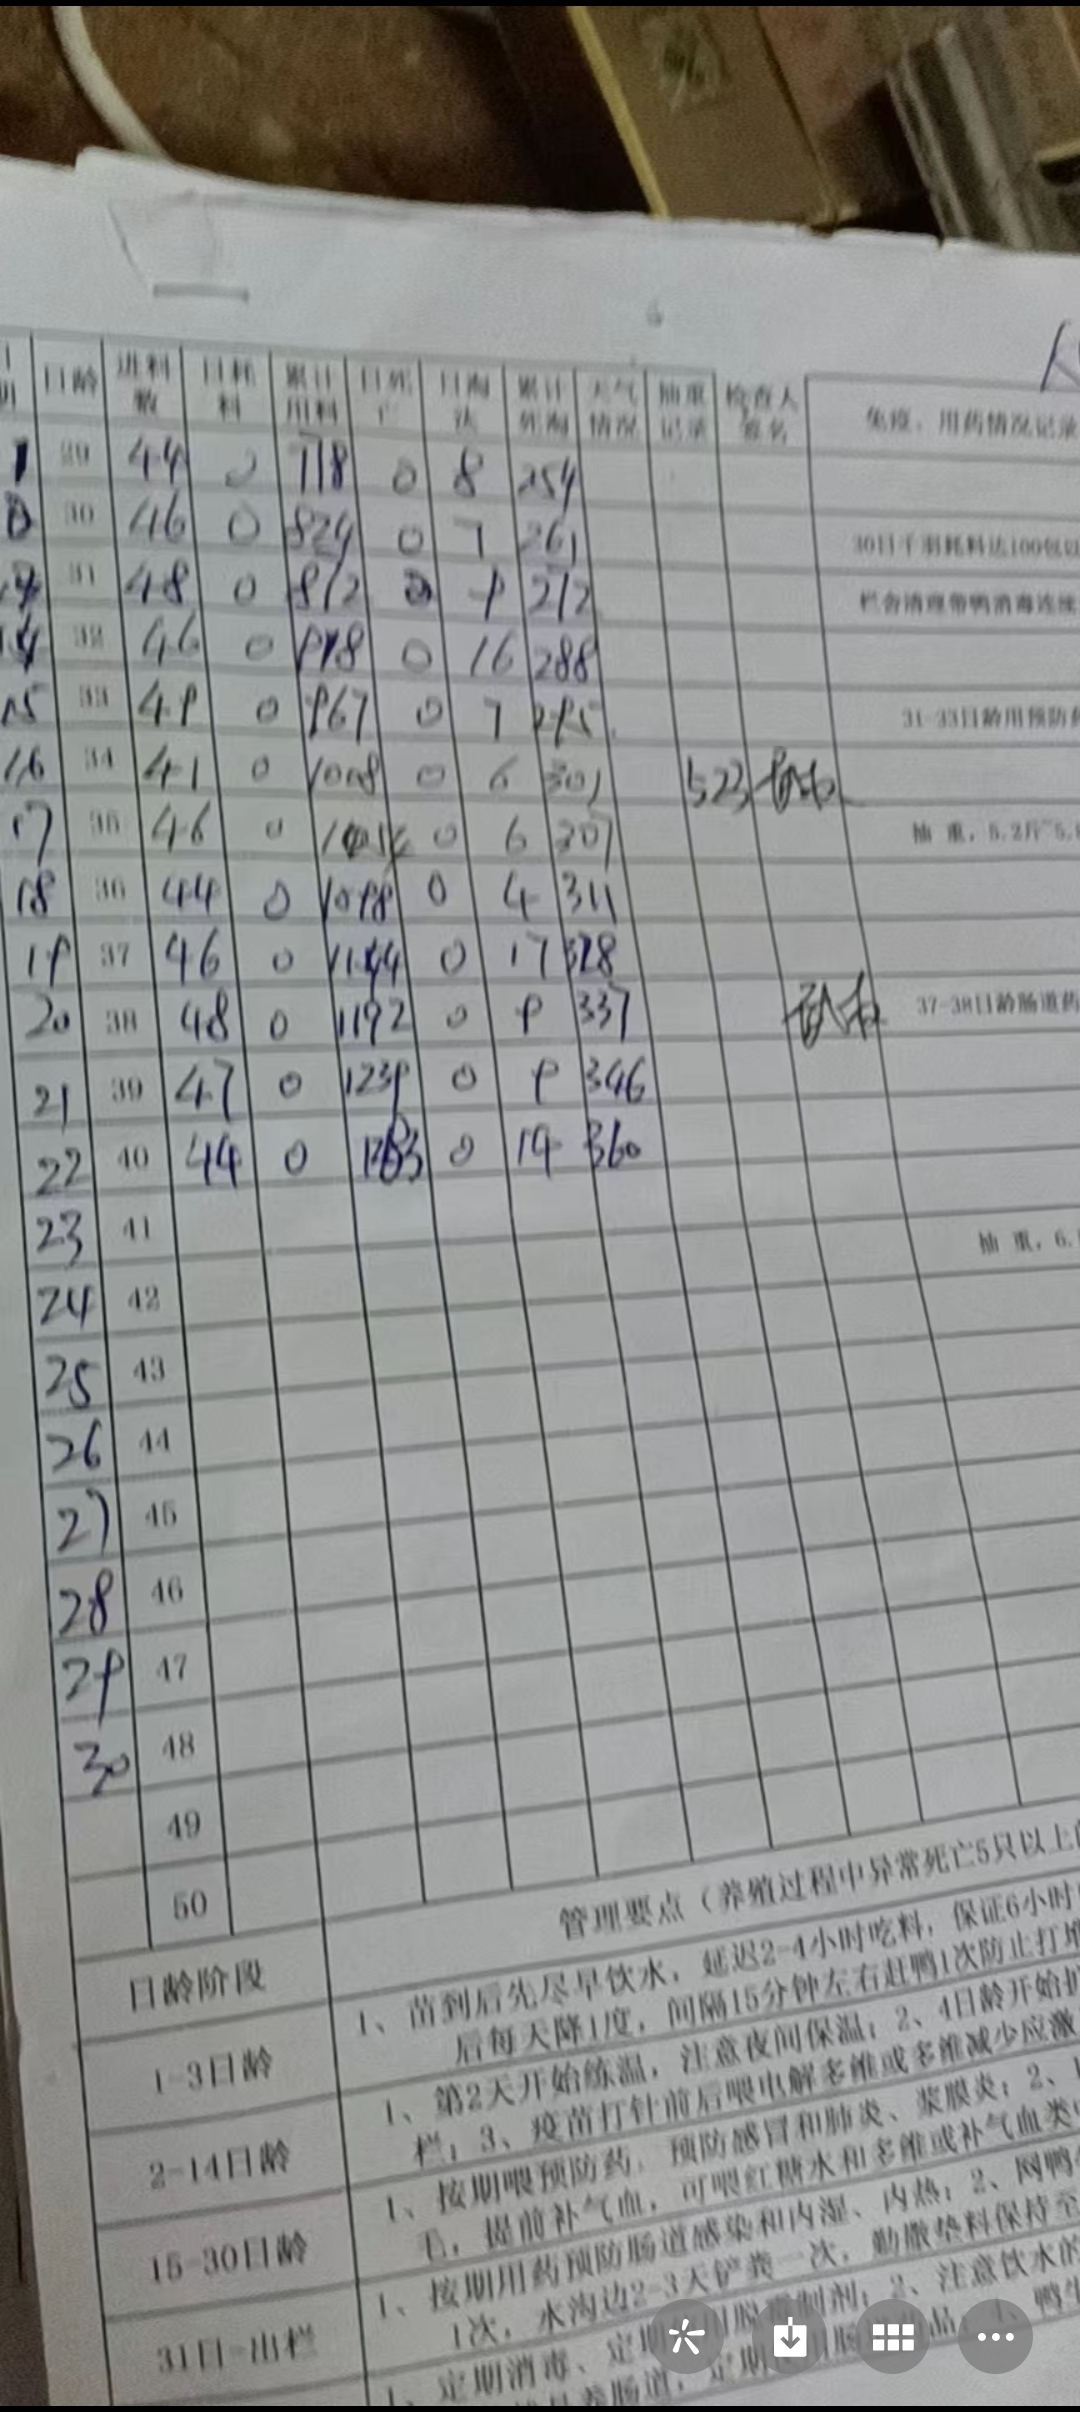 日龄 进料数 日耗料 累计用料 日死亡 日淘汰 累计死淘 天气情况 抽重记录 检查人签名 免疫、用药情况记录
29 44 0 718 0 8 254
30 46 0 824 0 7 261 30日千羽耗料达100包以
31 48 0 812 0 9 272 栏舍清理带鸭消毒连续
32 46 0 918 0 16 288
15 33 49 0 967 0 7 295 31-33日龄用预防药
16 34 41 0 1008 0 6 301 523
17 35 46 0 0 6 307 抽重，5.2斤~5.
18 36 44 0 1098 0 4 311
19 37 46 0 1144 0 17 328
20 38 48 0 1192 0 9 337 37-38日龄肠道药
21 39 47 0 1239 0 9 346
22 40 44 0 1283 0 14 360
23 41 抽重，6.
24 42
25 43
26 44
27 45
28 46
29 47
30 48
49
50
日龄阶段 管理要点（养殖过程中异常死亡5只以上
1-3日龄 1、苗到后先尽早饮水，延迟2-4小时吃料，保证6小时
后每天降1度，间隔15分钟左右赶鸭1次防止打堆
2-14日龄 1、第2天开始练温，注意夜间保温；2、4日龄开始扩
栏；3、疫苗打针前后喂电解多维或多维减少应激
15-30日龄 1、按期喂预防药，预防感冒和肺炎、浆膜炎；2、
毛，提前补气血，可喂红糖水和多维或补气血类
31日-出栏 1、按期用药预防肠道感染和内湿、内热；2、网鸭
1次，水沟边2-3天铲粪一次，勤撒垫料保持至
1、定期消毒、定期 制剂；2、注意饮水的